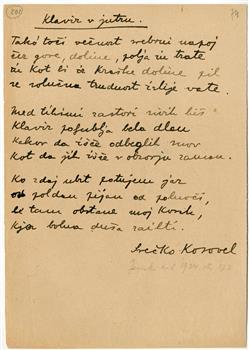 201
79
Klavir v jutru.
Tako toči večnost srebrni napoj
čez gore, doline, polja in trate
in kot bi še Kraške doline pil
se
trudnost izlije vate.
Med tihimi zastori sivih hiš
Klavir poljublja bela dlan
kakor da išče odbeglih snov
kot da jih išče v obzorju zaman.
Ko zdaj ubit potujem jaz
poldan pijan od polnoči,
le tam obstane moj korak,
kjer bolna duša zaihti.
Srečko Kosovel